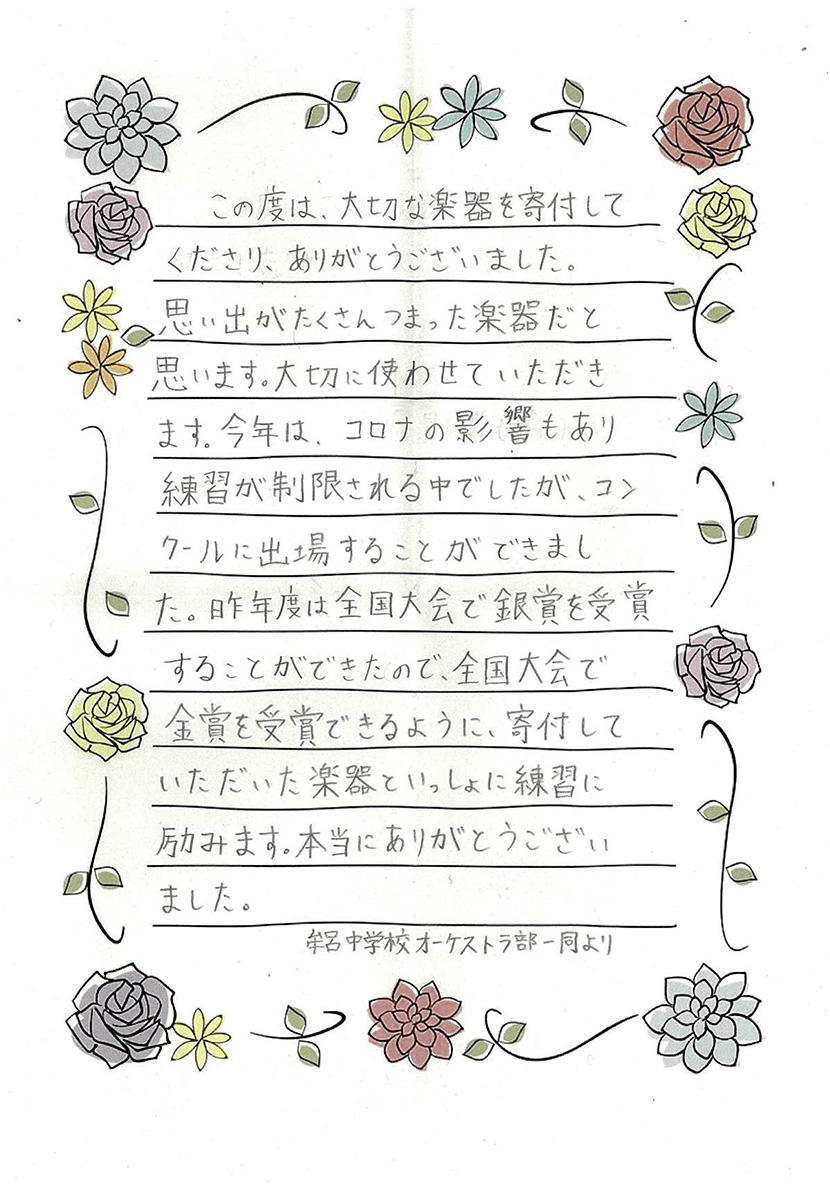 この度は、大切な楽器を寄付して
くださり、ありがとうございました。
思い出がたくさんつまった楽器だと
思います。大切に使わせていただき
ます。今年は、コロナの影響もあり
練習が制限される中でしたが、コン
クールに出場することができまし
た。昨年度は全国大会で銀賞を受賞
することができたので、全国大会で
金賞を受賞できるように、寄付して
いただいた楽器といっしょに練習に
励みます。本当にありがとうござい
ました。
牟呂中学校オーケストラ部一同より